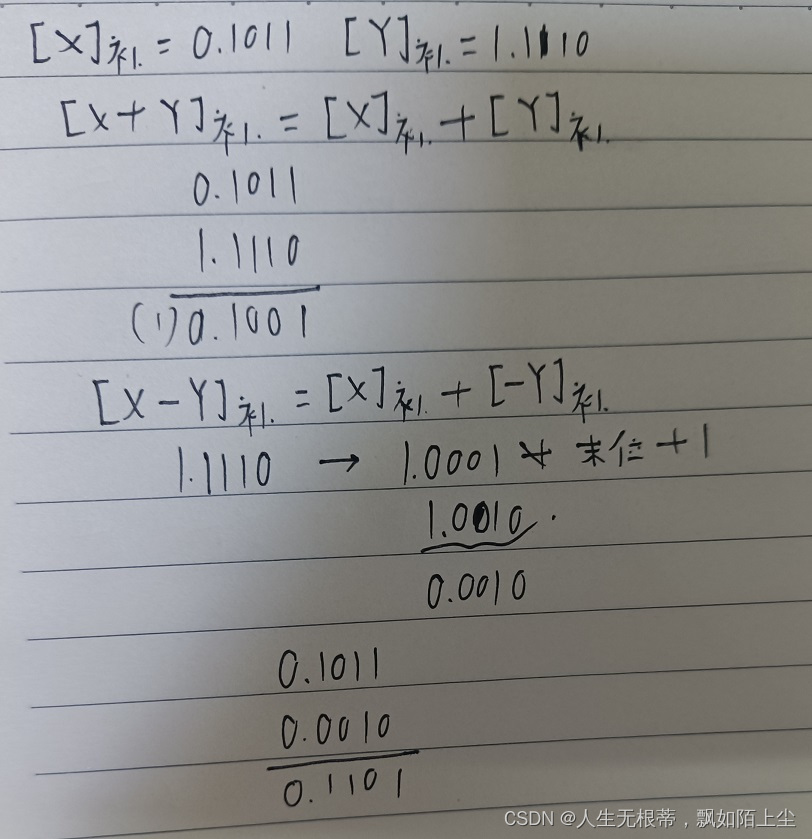 [X]补 = 0.1011 [Y]补 = 1.1110
[X+Y]补 = [X]补 + [Y]补
0.1011
1.1110
(1)0.1001
[X-Y]补 = [X]补 + [-Y]补
1.1110 → 1.0001 末位+1
1.0010
0.0010
0.1011
0.0010
0.1101
CSDN @人生无根蒂，飘如陌上尘